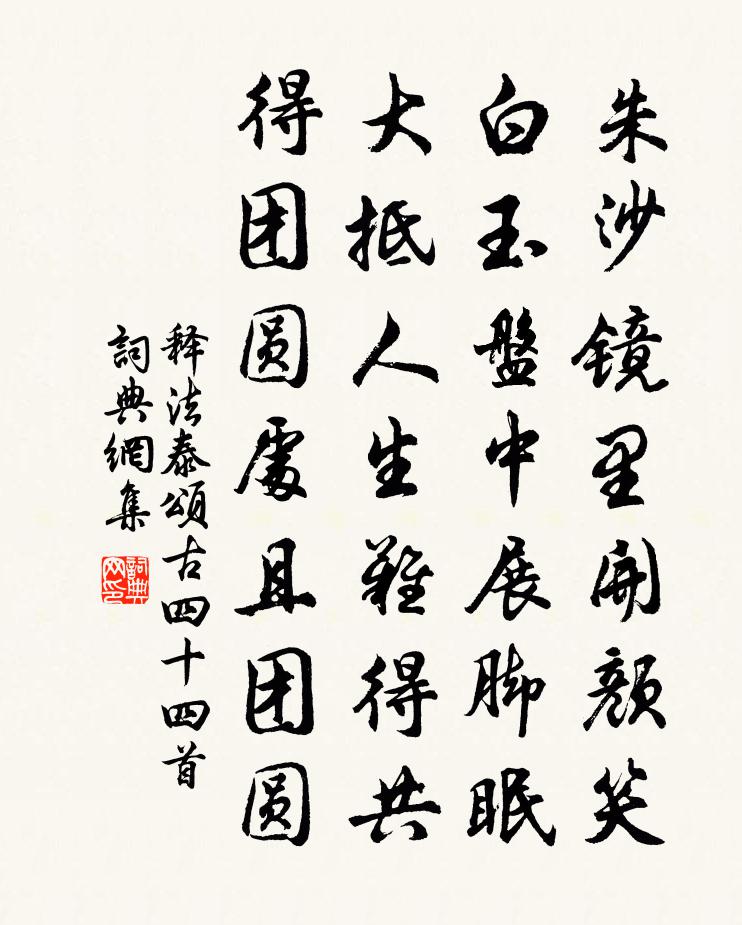 朱沙镜里开颜笑
白玉盤中展脚眠
大抵人生難得共
得团圆處且团圆
释法泰頌古四十四首
詞典網集
詞典网印